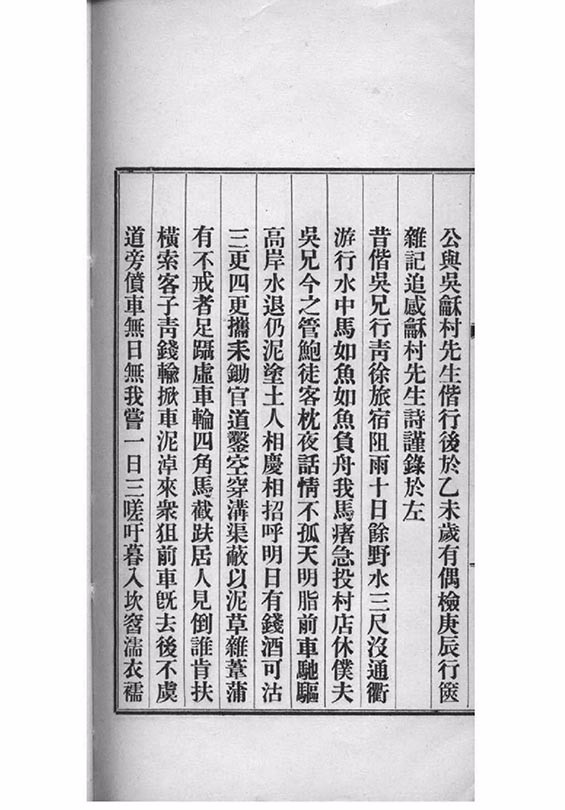 公與吳龢村先生偕行後於乙未歲有偶檢庚辰行篋
雜記追感龢村先生詩謹錄於左
昔偕吳兄行靑徐旅宿阻雨十日餘野水三尺沒通衢
游行水中馬如魚如魚負舟我馬瘏急投村店休僕夫
吳兄今之管鮑徒客枕夜話情不孤天明脂前車馳驅
高岸水退仍泥塗土人相慶相招呼明日有錢酒可沽
三更四更攜耒鋤官道鑿空穿溝渠蔽以泥草雜葦蒲
有不戒者足躡虛車輪四角馬截趺居人見倒誰肯扶
橫索客子靑錢輸掀車泥淖來衆狙前車旣去後不虞
道旁僨車無日無我嘗一日三嗟吁暮入坎窞濡衣襦